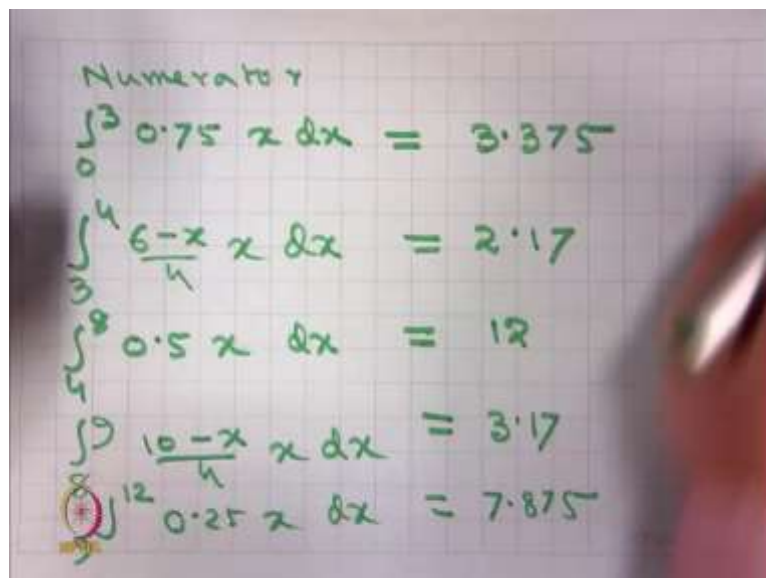 Numerator
∫₀³ 0.75 x dx = 3.375
∫₃⁴ (6-x)/4 x dx = 2.17
∫₄⁸ 0.5 x dx = 12
∫₈⁹ (10-x)/4 x dx = 3.17
∫₉¹² 0.25 x dx = 7.875